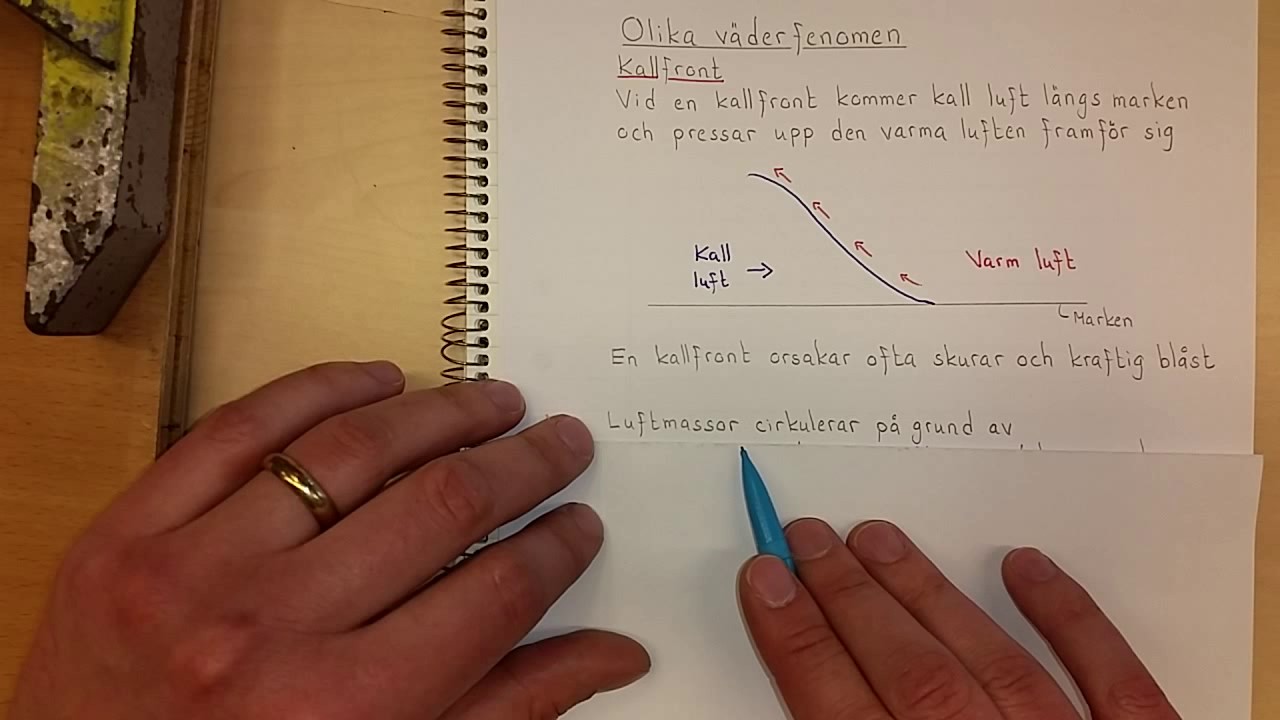 Olika väderfenomen
Kallfront
Vid en kallfront kommer kall luft längs marken
och pressar upp den varma luften framför sig
Kall
luft →
Varm luft
Marken
En kallfront orsakar ofta skurar och kraftig blåst
Luftmassor cirkulerar på grund av